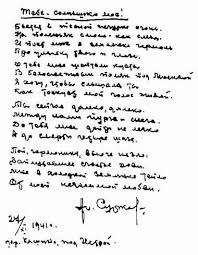 Тебе - солнышко моё!
Бьется в тесной печурке огонь
На поленьях смола - как слеза
И поет мне в землянке гармонь
Про улыбку твою и глаза.
О тебе мне шептали кусты
В белоснежных полях под Москвой
Я хочу, чтобы слышала ты
Как тоскует мой голос живой.
Ты сейчас далеко, далеко
Между нами снега и снега.
До тебя мне дойти не легко
А до смерти четыре шага.
Пой, гармоника, вьюге назло.
Заплутавшее счастье зови.
Мне в холодной землянке тепло
От моей негасимой любви.
А. Сурков
27/XI 1941 г.
под Истрой.